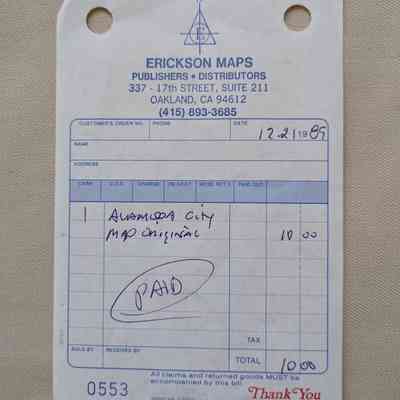 ERICKSON MAPS
PUBLISHERS • DISTRIBUTORS
337 - 17th STREET, SUITE 211
OAKLAND, CA 94612
(415) 893-3685
CUSTOMER'S ORDER NO. PHONE DATE 12-21 1989
NAME
ADDRESS
CASH C.O.D. CHARGE ON ACCT. MDSE. RET'D. PAID OUT
1 ALAMEDA CITY
MAP ORIGINAL 10 00
PAID
TAX
SOLD BY RECEIVED BY
TOTAL 10 00
All claims and returned goods MUST be
accompanied by this bill.
0553
Thank You